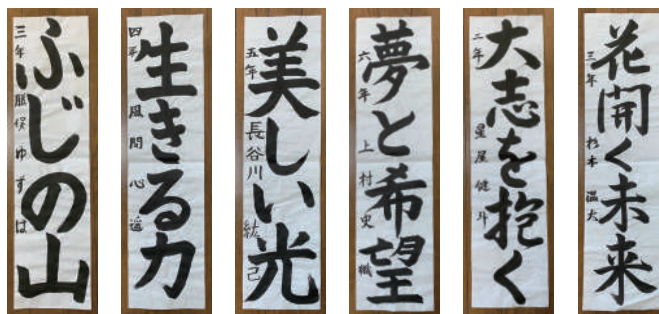 ふじの山
三年 服俣ゆずは
生きる力
四年 風間心遥
美しい光
五年 長谷川紘己
夢と希望
六年 上村史織
大志を抱く
二年 星屋健斗
花開く未来
三年 杉本温大